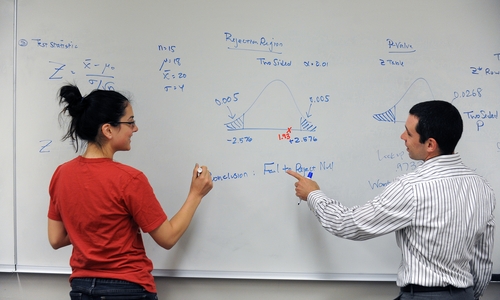 ② Test Statistic
Z = x̄ - μ₀ / σ/√n
Z
n=15
μ=18
x̄=20
σ=4
Rejection Region
Two Sided α=0.01
0.005
0.005
-2.576
1.93
+2.576
Conclusion: Fail to Reject Null
P-Value
Z Table
0.0268
Two Sided
P